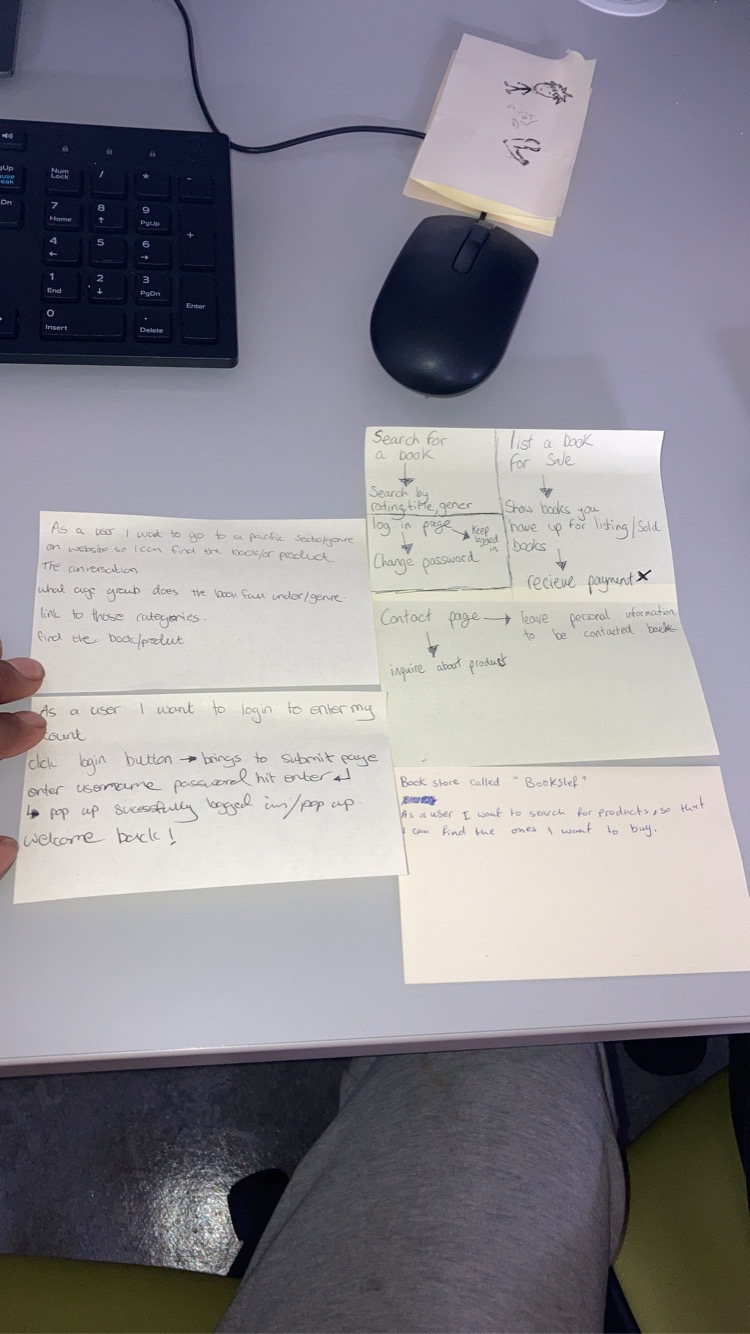 Num
Lock
/
*
-
gUp
Dn
7
Home
8
9
PgUp
+
4
5
6
1
End
2
3
PgDn
Enter
0
Insert
.
Delete
Search for
a book
Search by
rating, title, gener
log in page
Keep
logged
in
Change password
list a book
for sale
Show books you
have up for listing/sold
books
recieve payment X
Contact page → leave personal information
to be contacted back
inquire about products
As a user I want to go to a pacific section/genre
on website so I can find the book/or product
The conversation
what age group does the book fall under/genre.
link to those categories.
find the book/product
As a user I want to login to enter my
count
click login button → brings to submit page
enter username password hit enter ↲
↳ pop up sucessfully logged in/pop up
welcome back!
Book store called "Bookstef"
As a user I want to search for products, so that
I can find the ones I want to buy.